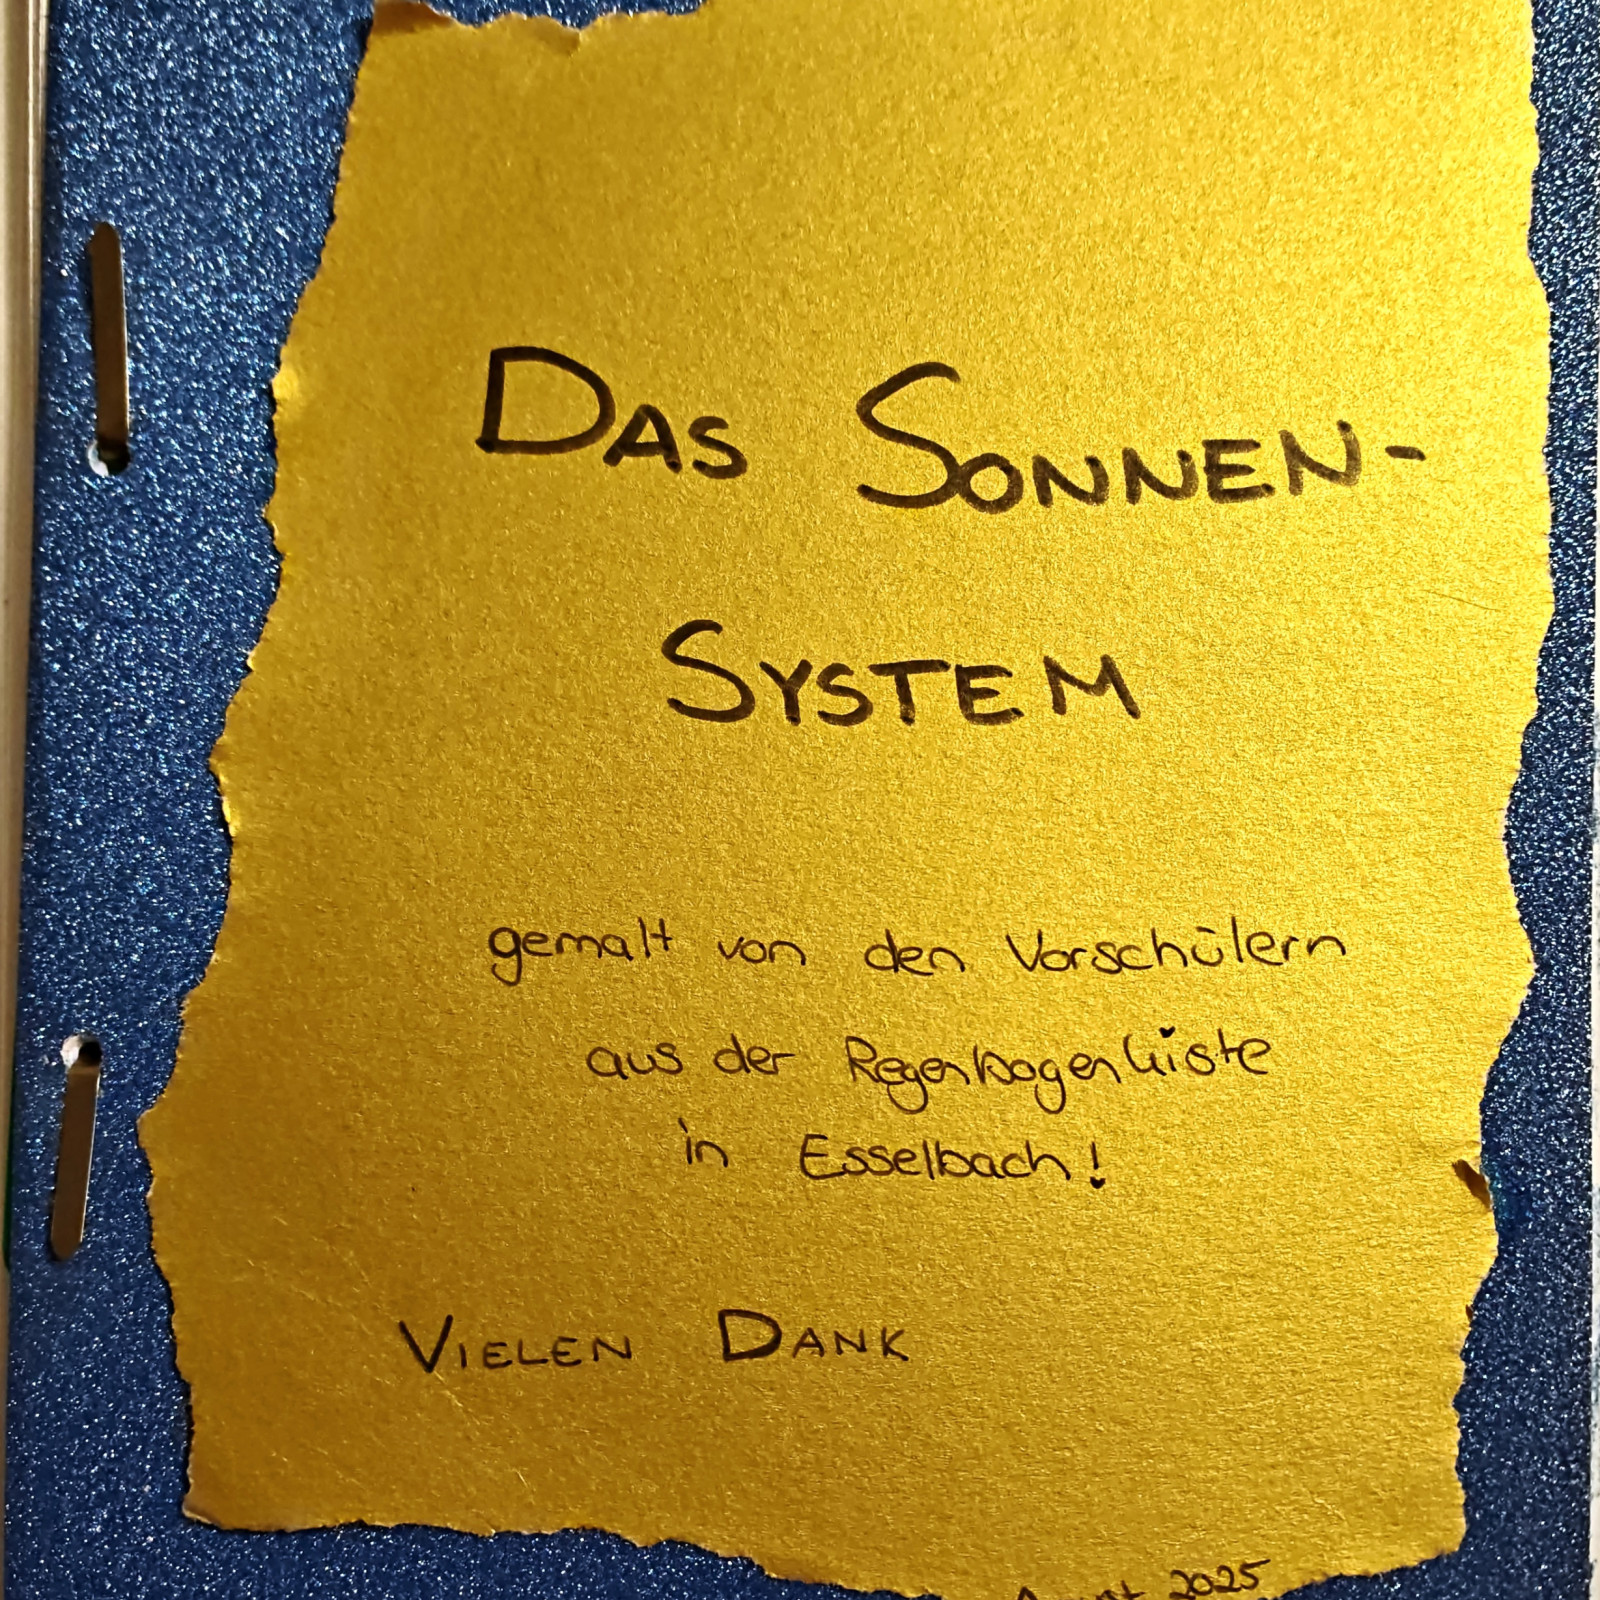 DAS SONNEN-
SYSTEM
gemalt von den Vorschülern
aus der Regenbogenkiste
in Esselbach!
VIELEN DANK
August 2025